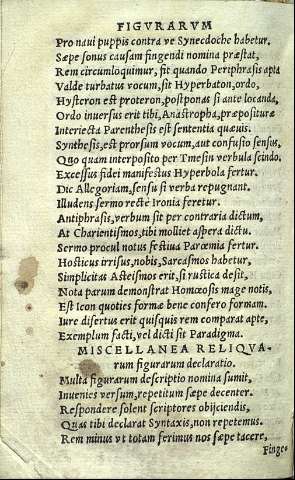 FIGVRARVM
Pro navi puppis contra ve Synecdoche habetur.
Sæpe sonus causam fingendi nomina præstat,
Rem circumloquimur, fit quando Periphrasis apta
Valde turbatus vocum, fit Hyperbaton, ordo,
Hysteron est proteron, postponas si ante locanda,
Ordo inversus erit tibi, Anastropha, præposituræ
Interiecta Parenthesis est sententia quævis.
Synthesis, est prorsum vocum, aut confusio sensus,
Quo quum interposito per Tmesin verbula scindo.
Excessus fidei manifestus Hyperbola fertur.
Dic Allegoriam, sensu si verba repugnant.
Illudens sermo rectè Ironia feretur.
Antiphrasis, verbum sit per contraria dictum,
At Charientismos, tibi molliet aspera dictu.
Sermo procul notus festiua Parœmia fertur.
Hosticus irrisus, nobis, Sarcasmos habetur,
Simplicitas Asteismos erit, si rustica desit,
Nota parum demonstrat Homœosis mage notis,
Est Icon quoties formæ bene confero formam.
Iure disertus erit quisquis rem comparat apte,
Exemplum facti, vel dicti sit Paradigma.
MISCELLANEA RELIQVA-
rum figurarum declaratio.
Multa figurarum descriptio nomina sumit,
Invenies versum, repetitum sæpe decenter.
Respondere solent scriptores obijciendis,
Quas tibi declarat Syntaxis, non repetemus.
Rem minus vt totam ferimus nos sæpe tacere,
Finge-